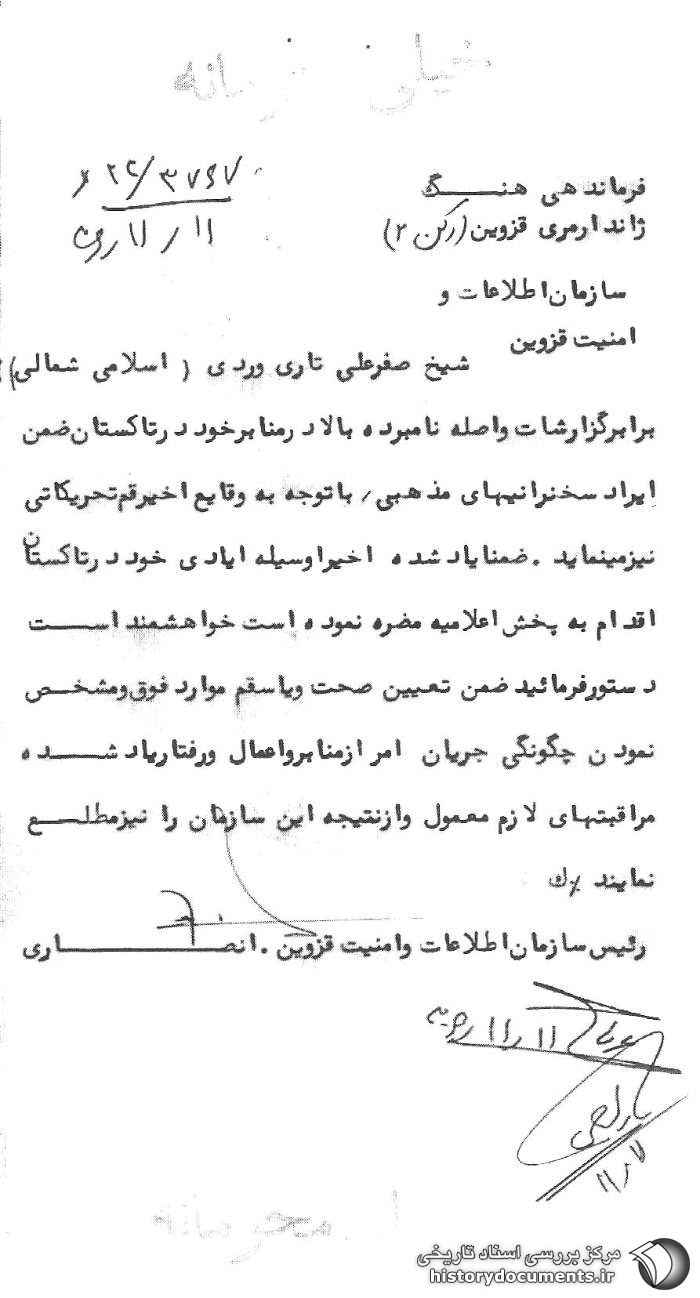 خیلی
۲۲/۳۷۶۷
فرماندهی هنگ
ژاندارمری قزوین (رکن ۲)
۱۱ / ۱۱
سازمان اطلاعات و
امنیت قزوین
شیخ صفرعلی تاری وردی ( اسلامی شمالی)
برابر گزارشات واصله نامبرده بالا در منابر خود در تاکستان ضمن
ایراد سخنرانیهای مذهبی, باتوجه به وقایع اخیر قم تحریکاتی
نیز مینماید . ضمنا یاد شده اخیرا وسیله ایادی خود در تاکستان
اقدام به پخش اعلامیه مضره نموده است خواهشمند است
دستور فرمائید ضمن تعیین صحت و یا سقم موارد فوق و مشخص
نمودن چگونگی جریان امر از منابر و اعمال و رفتار یاد شده
مراقبتهای لازم معمول و از نتیجه این سازمان را نیز مطلع
نمایند /ك
رئیس سازمان اطلاعات و امنیت قزوین . انصاری
۱۱ / ۱۱
محرمانه
مرکز بررسی اسناد تاریخی
historydocuments.ir